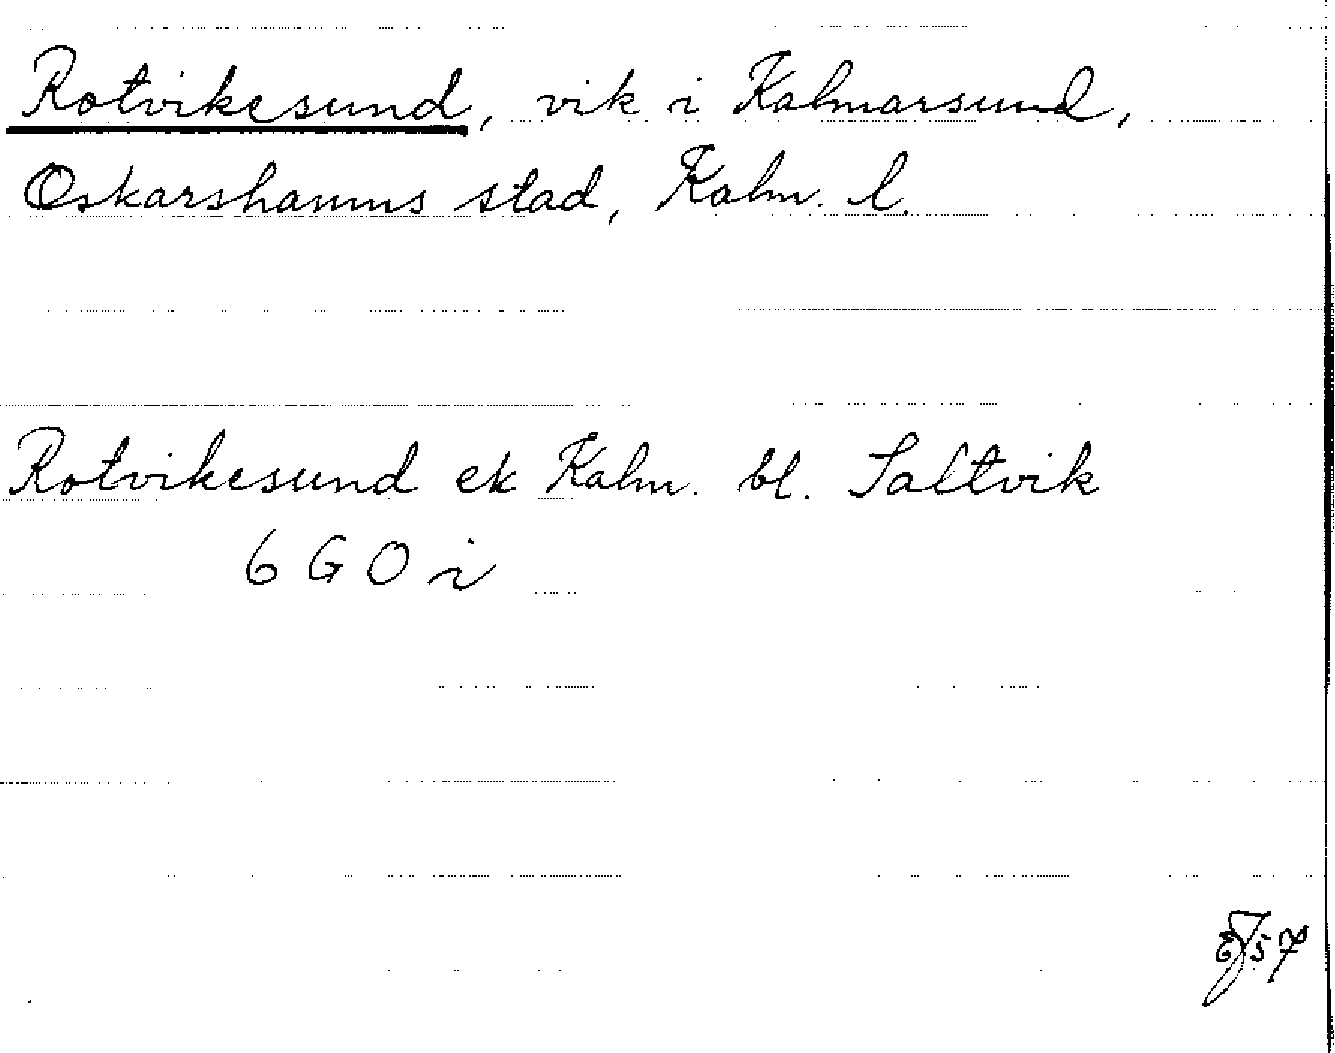 Rotvikesund, vik i Kalmarsund,
Oskarshamns stad, Kalm. l.
Rotvikesund ek Kalm. bl. Saltvik
6 G O i
57